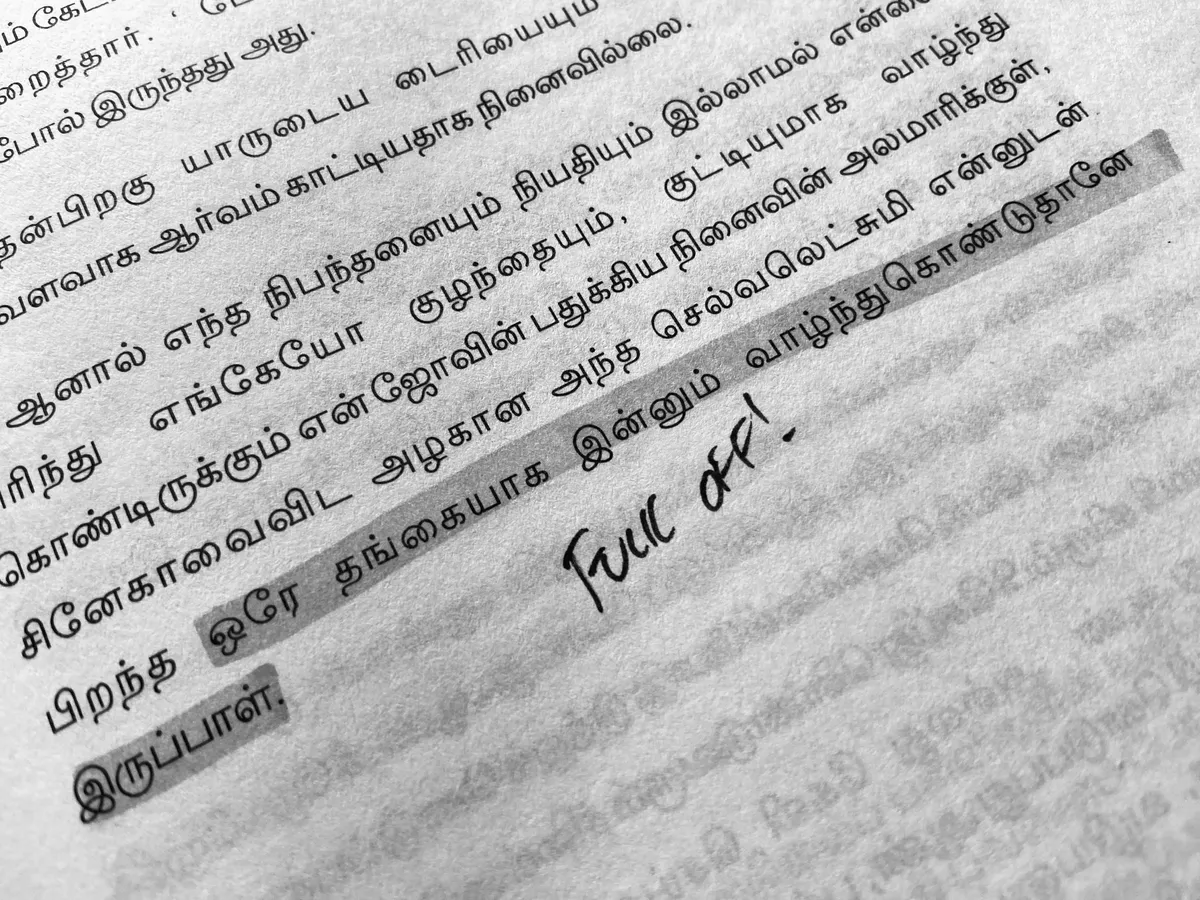 றைத்தார். '
போல் இருந்தது அது.
யாருடைய டைரியையும்
ஆர்வம் காட்டியதாக நினைவில்லை.
ஆனால் எந்த நிபந்தனையும் நியதியும் இல்லாமல்
எங்கேயோ குழந்தையும், குட்டியுமாக வாழ்ந்து
கொண்டிருக்கும் என் ஜோவின் பதுக்கிய நினைவின் அலமாரிக்குள்,
சினேகாவைவிட அழகான அந்த செல்வலெட்சுமி என்னுடன்
பிறந்த ஒரே தங்கையாக இன்னும் வாழ்ந்துகொண்டுதானே
இருப்பாள்.
Full OFF!